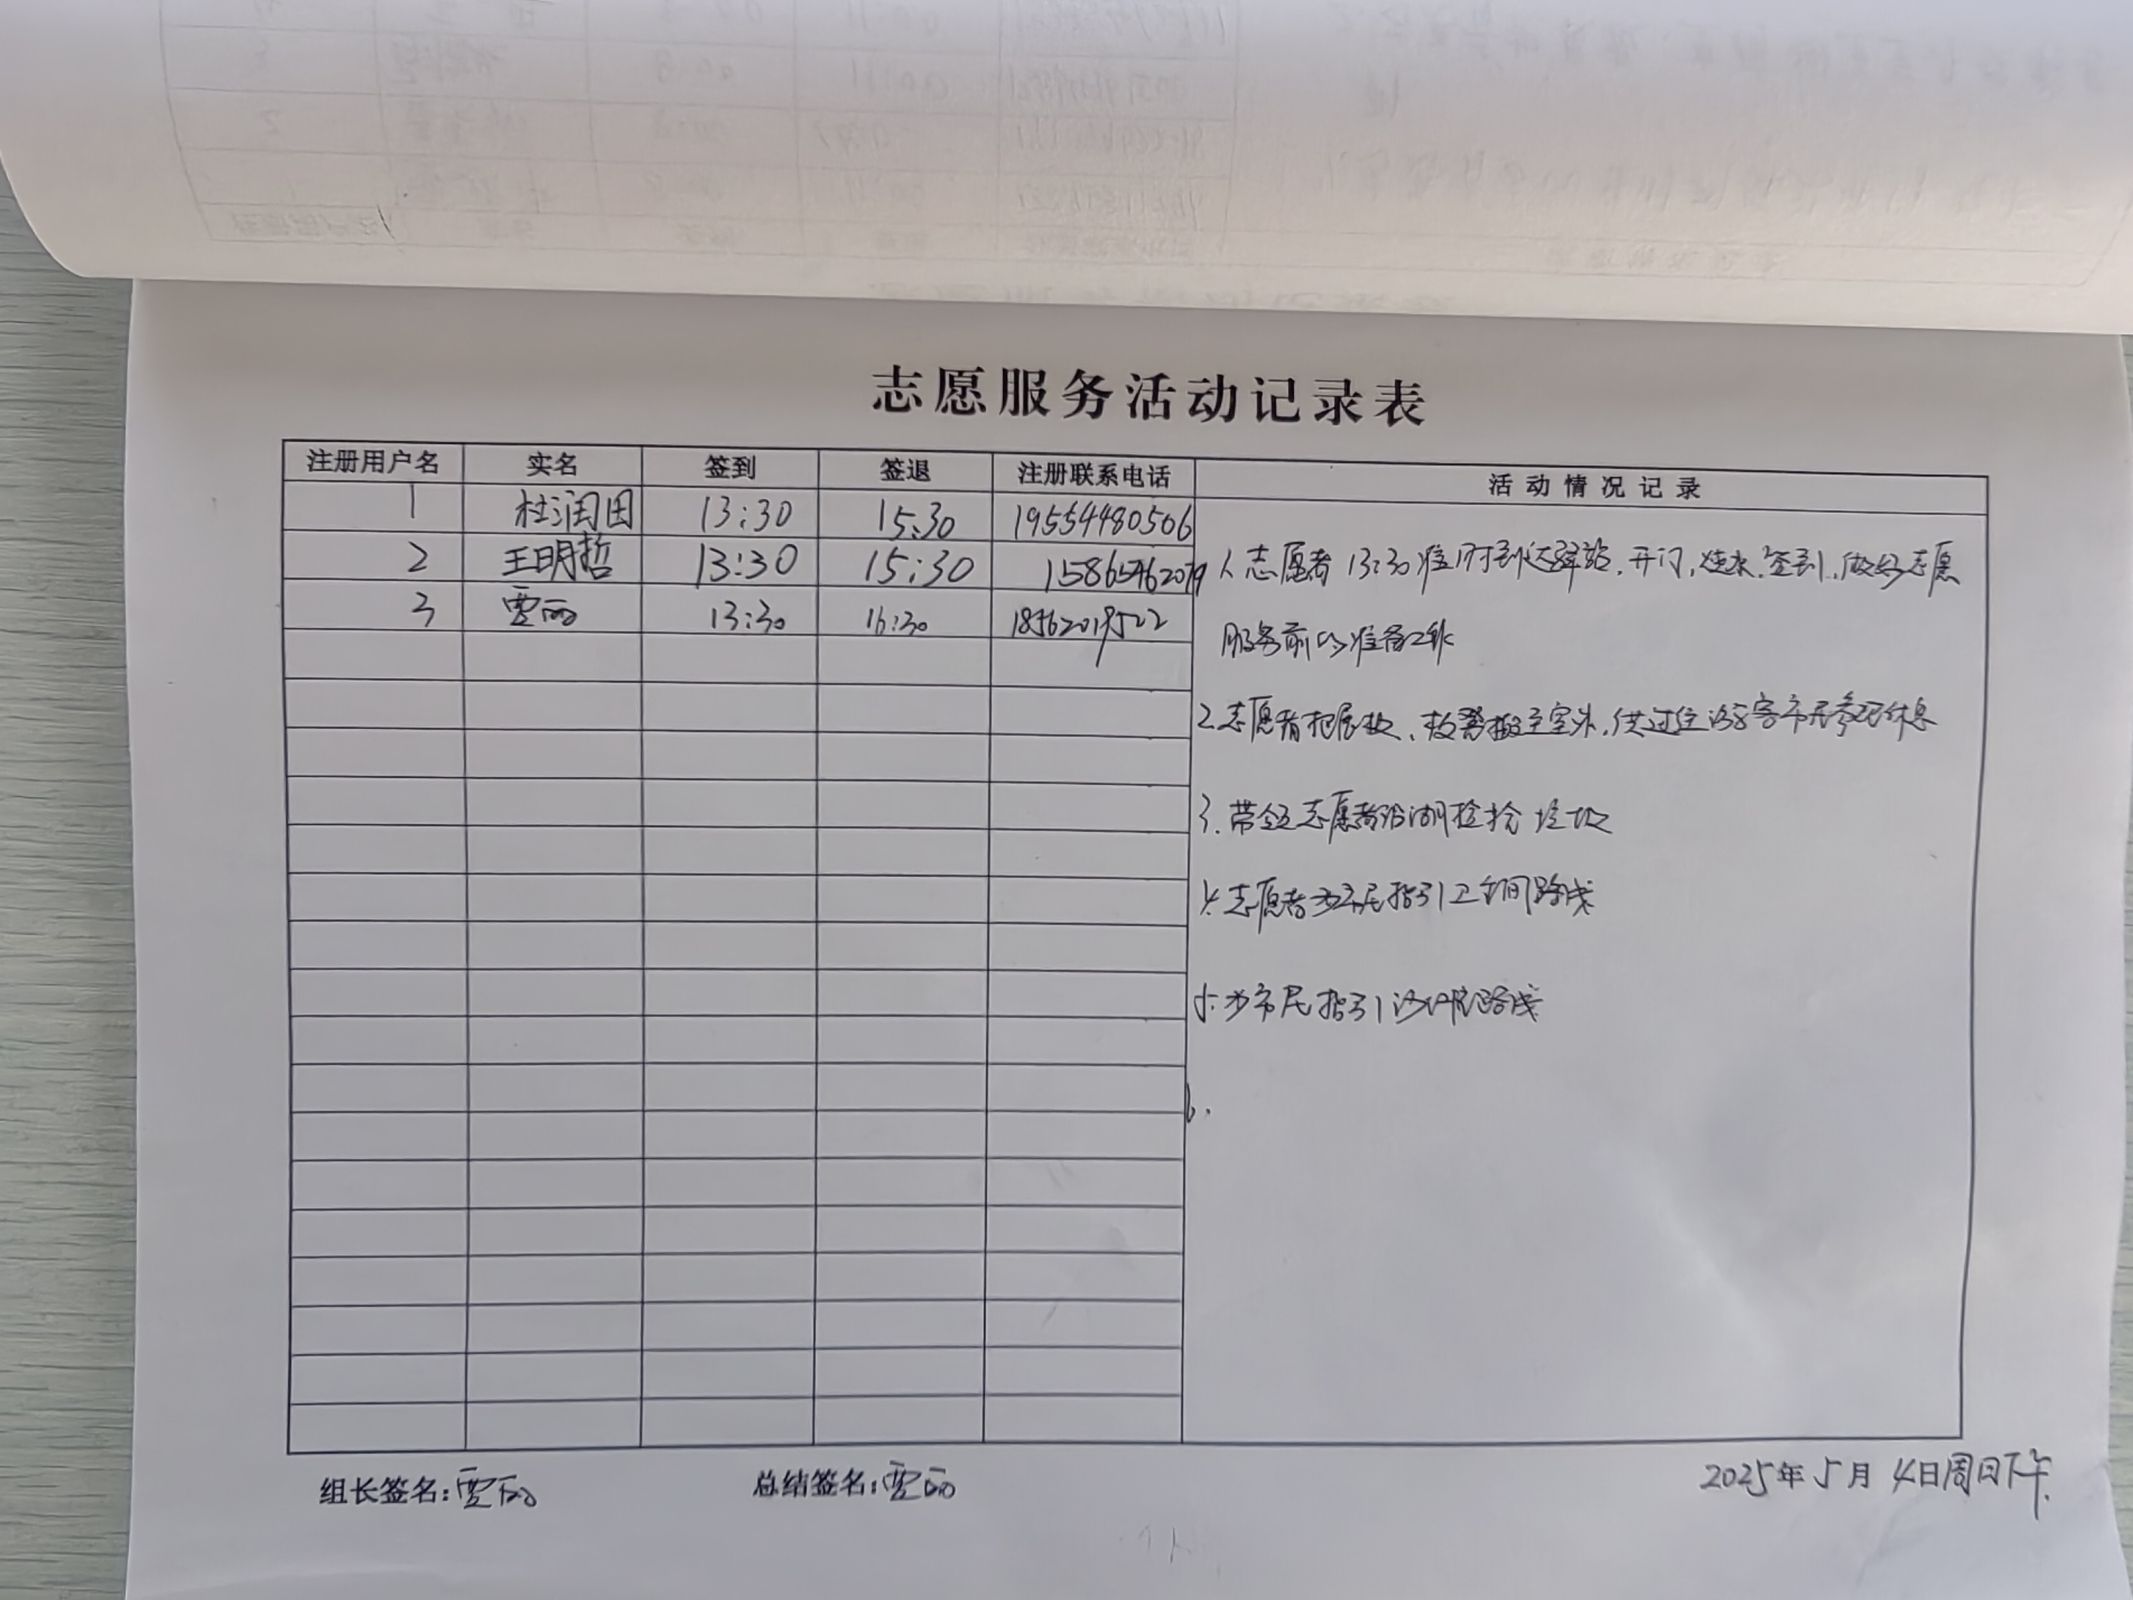 志愿服务活动记录表
注册用户名 实名 签到 签退 注册联系电话 活动情况记录
1 杜润田 13:30 15:30 19554480506
2 王明哲 13:30 15:30 15865462079
3 贾丽 13:30 16:30 18562019522
1.志愿者13:30准时到达驿站,开门,烧水,签到,做好志愿
服务前的准备工作
2.志愿者把展板、板凳搬至室外,供过往游客市民参观休息
3.带领志愿者沿湖捡拾垃圾
4.志愿者为市民指引卫生间路线
5.为市民指引路线
6.
组长签名:贾丽 总结签名:贾丽 2025年5月4日周日下午.